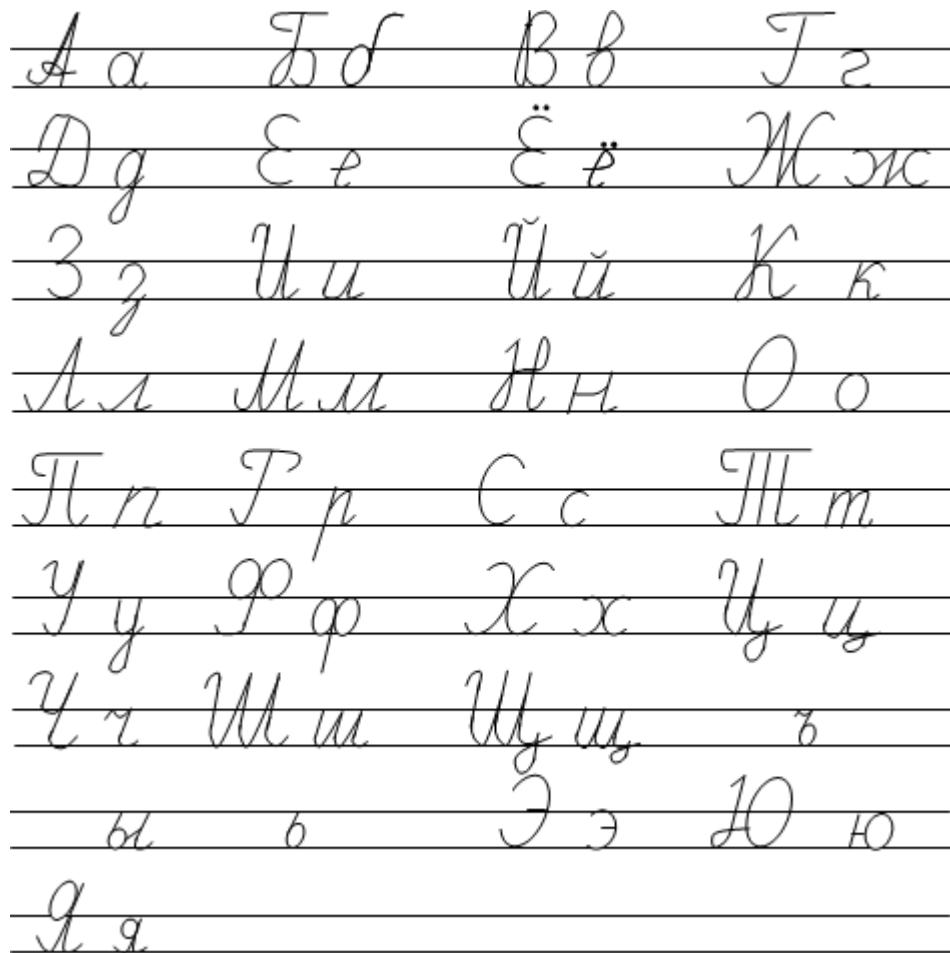 А а Б б В в Г г
Д д Е е Ё ё Ж ж
З з И и Й й К к
Л л М м Н н О о
П п Р р С с Т т
У у Ф ф Х х Ц ц
Ч ч Ш ш Щ щ ъ
ы ь Э э Ю ю
Я я